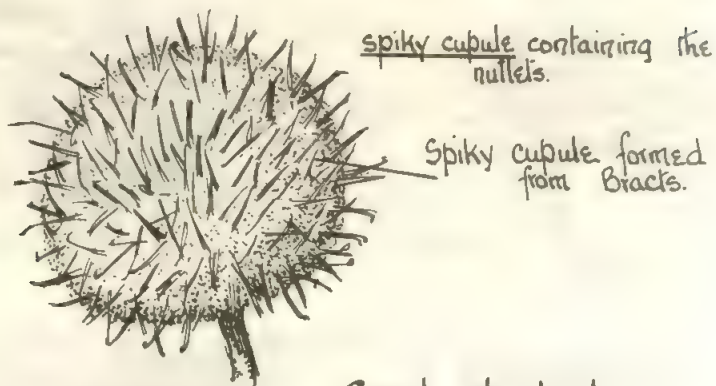 spiky cupule containing the
nutlets.
Spiky cupule formed
from Bracts.